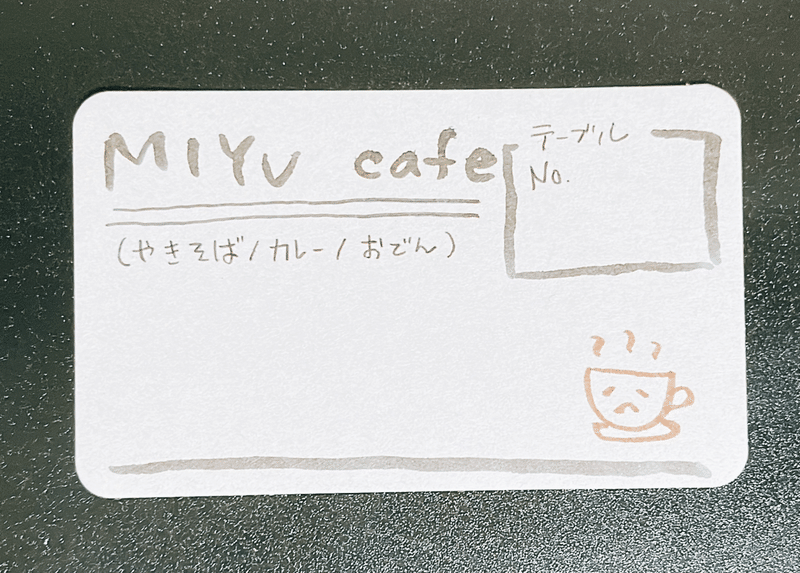 MIYU cafe
テーブル
No.
(やきそば/カレー/おでん)